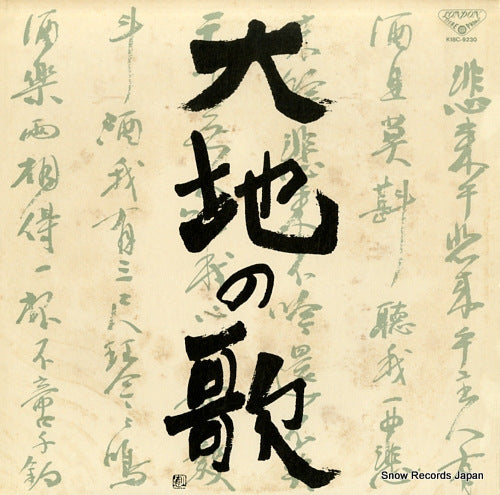 LONDON
K18C-9230
大地の歌
悲来乎悲来乎主人有
酒且莫斟聽我一曲悲
来吟悲来不吟
我
斗酒我有三尺琴々鳴
酒樂兩相得一杯不啻千鈞
Snow Records Japan